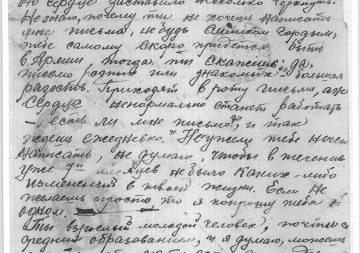 но сердце заставило несколько дрогнуть.
Не знаю, почему ты не хочешь написать
мне письма, не будь слишком гордым,
тебе самому скоро придется быть
в Армии тогда ты скажешь, да,
письмо родных или знакомых - большая
радость. Приходят в роту письма, аж
сердце ненормально станет работать
- есть ли мне письмо?", и так
ждешь ежедневно. Неужели тебе нечего
написать, не думаю, чтобы в течении
уже не было каких-либо
изменений в твоей жизни. Если не
желаешь просто, то я попрошу тебя
одном.
Ты взрослый молодой человек, почти с
средним образованием, и я думаю, можешь